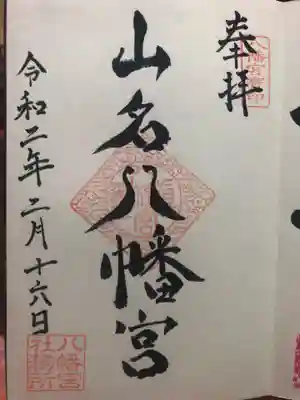 奉拝
山名八幡宮
令和二年二月十六日
八幡宮
社務所